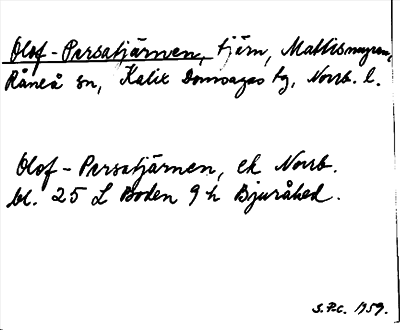 Olof-Persatjärnen, tjärn, Mattismyran,
Råneå sn, Kalix Domsagas tg, Norrb. l.
Olof-Persatjärnen, ek Norrb.
bl. 25 L Boden 9 h Bjuråhed.
S.P.C. 1959.